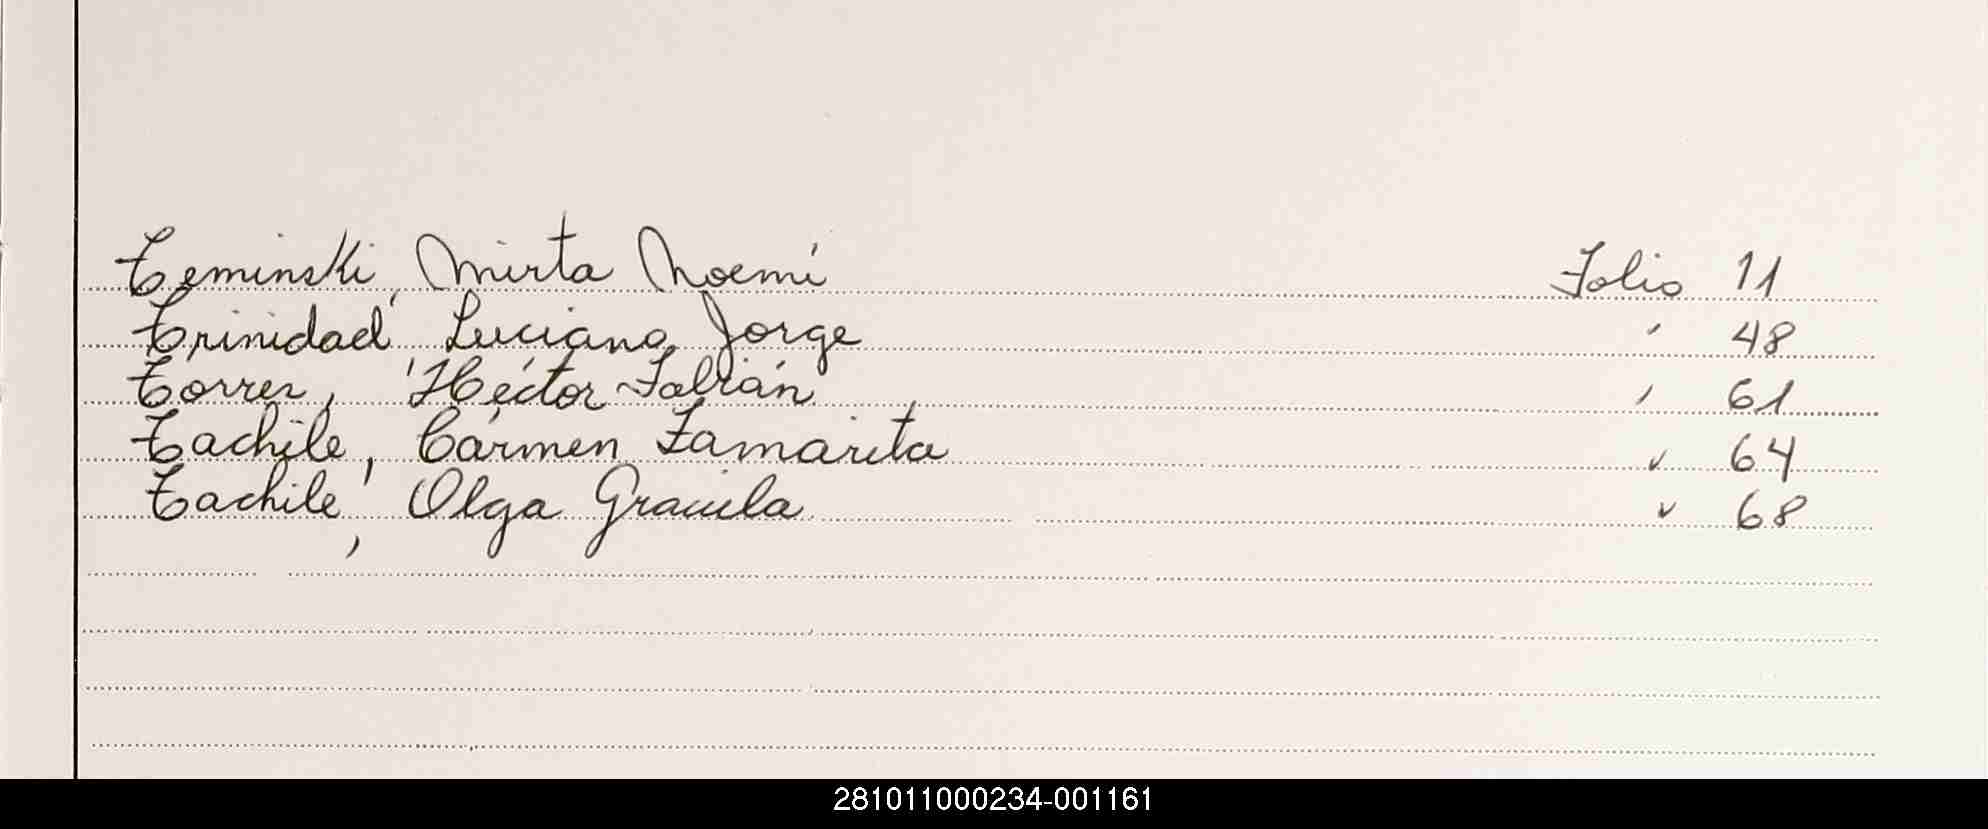 Teminski, Mirta Noemí Folio 11
Trinidad, Luciano Jorge " 48
Torres, Héctor Fabián " 61
Tachile, Carmen Zamarita " 64
Tachile, Olga Graciela " 68
281011000234-001161